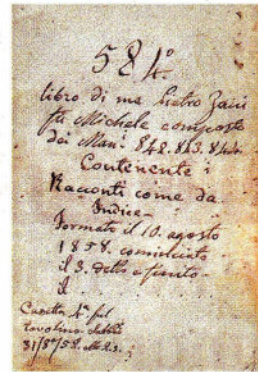 584°
libro di me Pietro Zani
fu Michele composto
dei Man.
Contenente i
Racconti come da
Indice
Formato il 10. agosto
1858. cominciato
il 3. detto e finito
il
Casetta 4ª sul
tavolino
31/8°/58. alle 2.3.